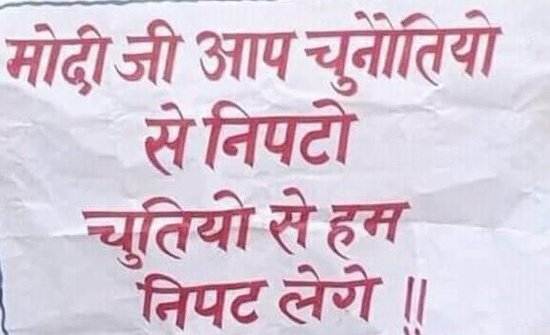 मोदी जी आप चुनौतियो
से निपटो
चुतियो से हम
निपट लेगे !!